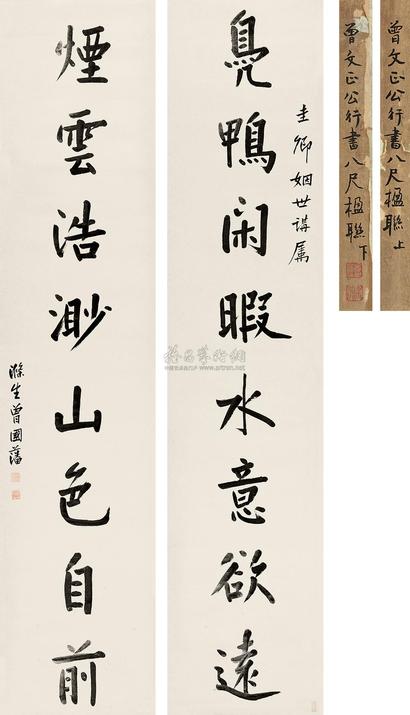 曾文正公行書八尺楹聯上
曾文正公行書八尺楹聯下
圭卿姻世講屬
鳧鴨閑暇水意欲遠
煙雲浩渺山色自前
滌生曾國藩